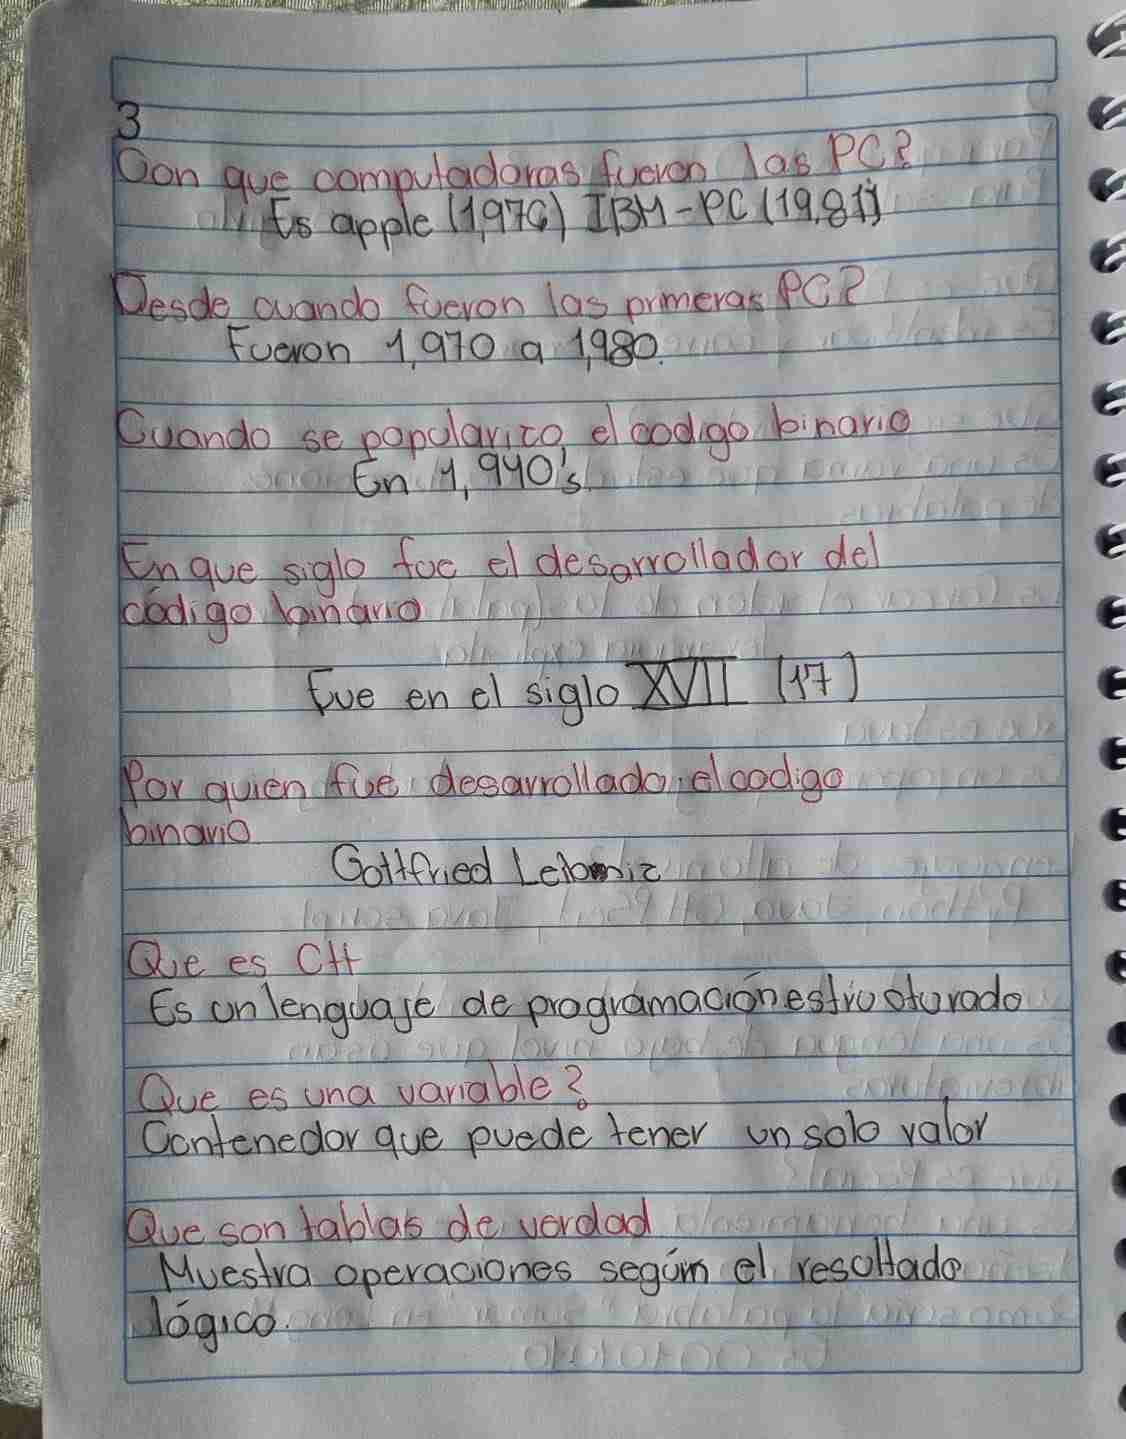 3
Con que computadoras fueron las PC?
Es apple (1,976) IBM-PC (19,81)
Desde cuando fueron las prmeras PC?
Fueron 1,970 a 1,980.
Cuando se popularizo el codigo binario
En 1,940's.
En que siglo fue el desarrollador del
código binario
Fue en el siglo XVII (17)
Por quien fue desarrollado el codigo
binario
Gottfried Leibniz
Que es C++
Es un lenguaje de programación estructurado
Que es una variable?
Contenedor que puede tener un solo valor
Que son tablas de verdad
Muestra operaciones según el resultado
lógico.